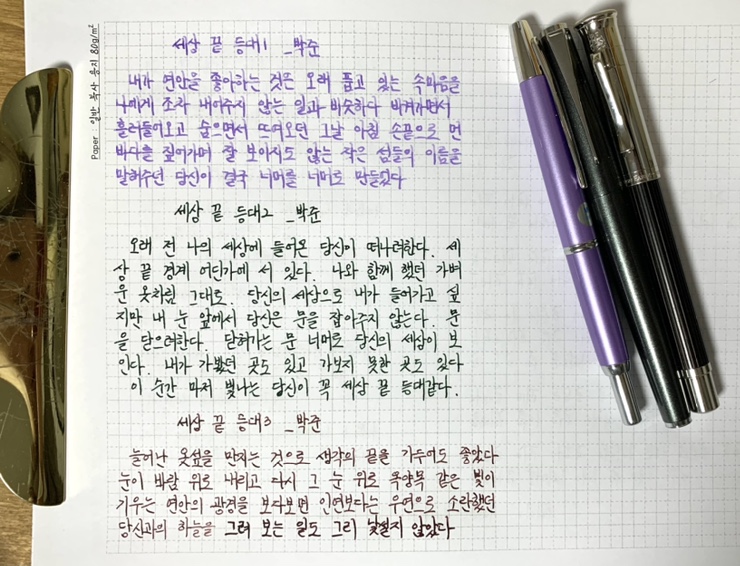 Paper 일반 복사 용지 80g/m²
세상 끝 등대1 _박준
내가 연안을 좋아하는 것은 오래 품고 있는 속마음을
나에게 조차 내어주지 않는 일과 비슷하다 비켜가면서
흘러들어오고 숨으면서 뜨여오던 그날 아침 손끝으로 먼
바다를 짚어가며 잘 보이지도 않는 작은 섬들의 이름을
말해주던 당신이 결국 너머를 너머로 만들었다
세상 끝 등대2 _박준
오래 전 나의 세상에 들어온 당신이 떠나려한다. 세
상 끝 경계 어딘가에 서 있다. 나와 함께 했던 가벼
운 옷차림 그대로. 당신의 세상으로 내가 들어가고 싶
지만 내 눈 앞에서 당신은 문을 잡아주지 않는다. 문
을 닫으려한다. 닫혀가는 문 너머로 당신의 세상이 보
인다. 내가 가봤던 곳도 있고 가보지 못한 곳도 있다
이 순간 마저 빛나는 당신이 꼭 세상 끝 등대같다.
세상 끝 등대3 _박준
늘어난 옷섶을 만지는 것으로 생각의 끝을 가두어도 좋았다
눈이 바람 위로 내리고 다시 그 눈 위로 옥양목 같은 빛이
기우는 연안의 광경을 보다보면 인연보다는 우연으로 소란했던
당신과의 하늘을 그려 보는 일도 그리 낯설지 않았다